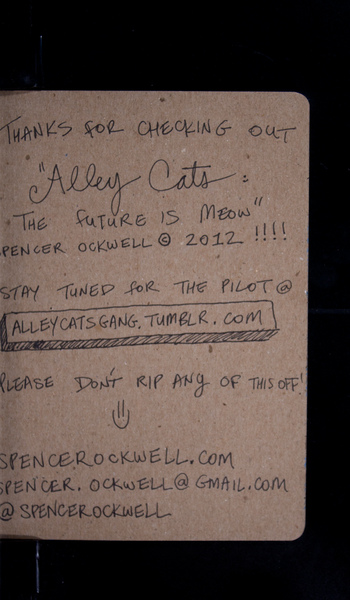 THANKS FOR CHECKING OUT
"Alley Cats:
THE FUTURE IS MEOW"
SPENCER OCKWELL © 2012 !!!!
STAY TUNED FOR THE PILOT @
ALLEYCATSGANG.TUMBLR.COM
PLEASE DON'T RIP ANY OF THIS OFF!
SPENCEROCKWELL.COM
SPENCER.OCKWELL@GMAIL.COM
@SPENCEROCKWELL